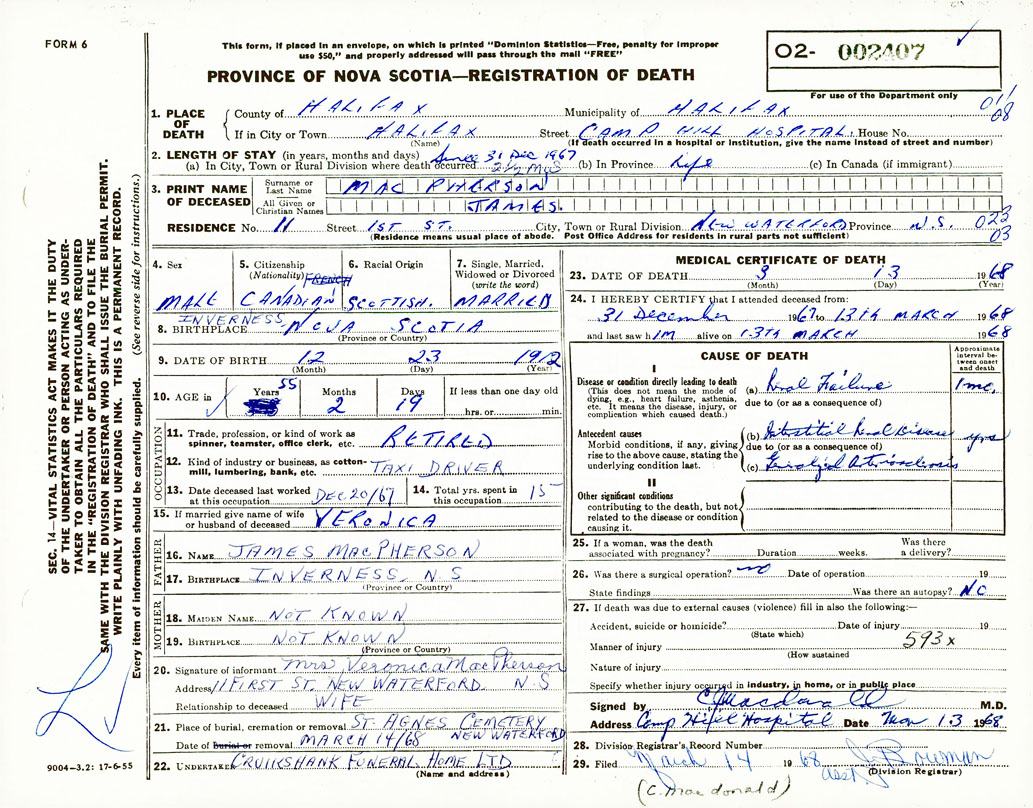 FORM 6
This form, if placed in an envelope, on which is printed "Dominion Statistics—Free, penalty for improper
use $50," and properly addressed will pass through the mail "FREE"
PROVINCE OF NOVA SCOTIA—REGISTRATION OF DEATH
02- 002407
For use of the Department only
1. PLACE OF DEATH
County of HALIFAX Municipality of HALIFAX 011
If in City or Town HALIFAX Street CAMP HILL HOSPITAL. House No. 08
(Name) (If death occurred in a hospital or institution, give the name instead of street and number)
2. LENGTH OF STAY (in years, months and days) Since 31 Dec 1967
(a) In City, Town or Rural Division where death occurred 2 1/2 mos (b) In Province Life (c) In Canada (if immigrant)
3. PRINT NAME OF DECEASED
Surname or Last Name MAC PHERSON
All Given or Christian Names JAMES.
RESIDENCE No. 11 Street 1ST ST. City, Town or Rural Division NEW WATERFORD Province N.S. 023
(Residence means usual place of abode. Post Office Address for residents in rural parts not sufficient) 03
4. Sex MALE
5. Citizenship (Nationality) FRENCH CANADIAN
6. Racial Origin SCOTTISH.
7. Single, Married, Widowed or Divorced (write the word) MARRIED
8. BIRTHPLACE INVERNESS NOVA SCOTIA
(Province or Country)
9. DATE OF BIRTH 12 23 1912
(Month) (Day) (Year)
10. AGE in Years 55 Months 2 Days 19 If less than one day old
hrs. or min.
OCCUPATION
11. Trade, profession, or kind of work as spinner, teamster, office clerk, etc. RETIRED
12. Kind of industry or business, as cotton-mill, lumbering, bank, etc. TAXI DRIVER
13. Date deceased last worked at this occupation DEC 20/67 14. Total yrs. spent in this occupation 15
15. If married give name of wife or husband of deceased VERONICA
FATHER
16. NAME JAMES MACPHERSON
17. BIRTHPLACE INVERNESS, N S
(Province or Country)
MOTHER
18. MAIDEN NAME NOT KNOWN
19. BIRTHPLACE NOT KNOWN
(Province or Country)
20. Signature of informant Mrs Veronica MacPherson
Address 11 FIRST ST. NEW WATERFORD N S
Relationship to deceased WIFE
21. Place of burial, cremation or removal ST. AGNES CEMETERY
Date of Burial or removal MARCH 14/68 NEW WATERFORD
22. UNDERTAKER CRUIKSHANK FUNERAL HOME LTD
(Name and address)
MEDICAL CERTIFICATE OF DEATH
23. DATE OF DEATH 3 13 1968
(Month) (Day) (Year)
24. I HEREBY CERTIFY that I attended deceased from:
31 December 1967 to 13TH MARCH 1968
and last saw h IM alive on 13TH MARCH 1968
CAUSE OF DEATH
Approximate interval between onset and death
I
Disease or condition directly leading to death (a) Renal Failure 1 mo.
(This does not mean the mode of dying, e.g., heart failure, asthenia, etc. It means the disease, injury, or complication which caused death.)
due to (or as a consequence of)
Antecedent causes (b) Interstitial Renal Disease yrs
Morbid conditions, if any, giving rise to the above cause, stating the underlying condition last.
due to (or as a consequence of)
(c) Generalized Arteriosclerosis
II
Other significant conditions contributing to the death, but not related to the disease or condition causing it.
25. If a woman, was the death associated with pregnancy? Duration weeks. Was there a delivery?
26. Was there a surgical operation? no Date of operation 19
State findings Was there an autopsy? NO
27. If death was due to external causes (violence) fill in also the following:—
Accident, suicide or homicide? Date of injury 19
(State which)
Manner of injury 593x
(How sustained
Nature of injury
Specify whether injury occurred in industry, in home, or in public place
Signed by C Macdonald M.D.
Address Camp Hill Hospital Date Mar 13 1968
28. Division Registrar's Record Number
29. Filed March 14 1968 Bowman
asst (Division Registrar)
(C. Macdonald)
SEC. 14—VITAL STATISTICS ACT MAKES IT THE DUTY
OF THE UNDERTAKER OR PERSON ACTING AS UNDER-
TAKER TO OBTAIN ALL THE PARTICULARS REQUIRED
IN THE "REGISTRATION OF DEATH" AND TO FILE THE
SAME WITH THE DIVISION REGISTRAR WHO SHALL ISSUE THE BURIAL PERMIT.
WRITE PLAINLY WITH UNFADING INK. THIS IS A PERMANENT RECORD.
Every item of information should be carefully supplied. (See reverse side for instructions.)
9004-3.2: 17-6-55